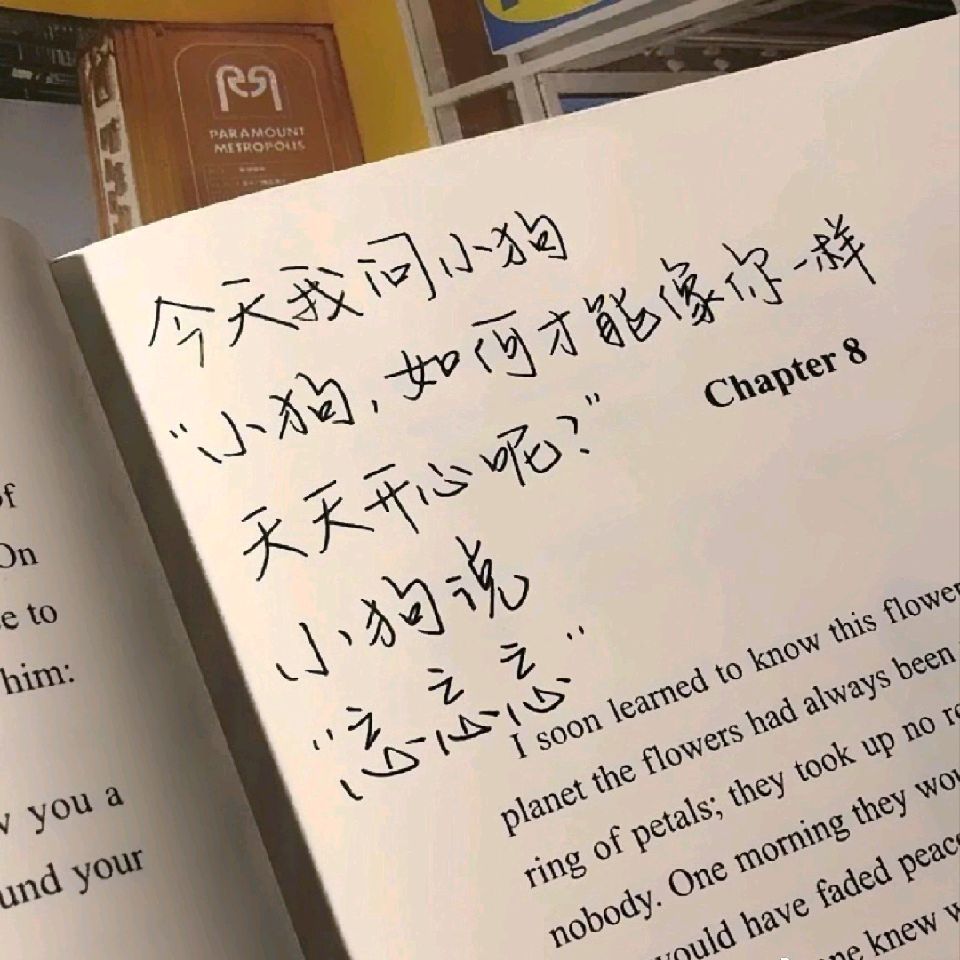 PARAMOUNT
METROPOLIS
今天我问小狗
“小狗，如何才能像你一样
天天开心呢？”
小狗说
“忘忘忘”
of
On
e to
him:
you a
und your
Chapter 8
I soon learned to know this flower
planet the flowers had always been
ring of petals; they took up no
nobody. One morning they wou
would have faded peac
ne knew